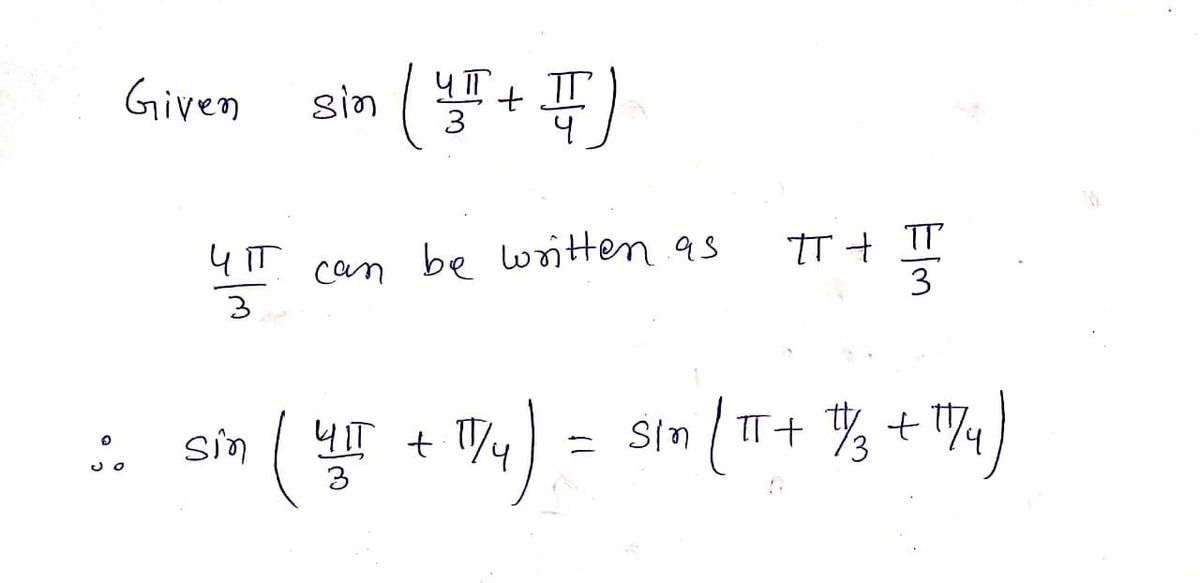 Given sin (4π/3 + π/4)
4π/3 can be written as π + π/3
∴ sin (4π/3 + π/4) = sin (π + π/3 + π/4)